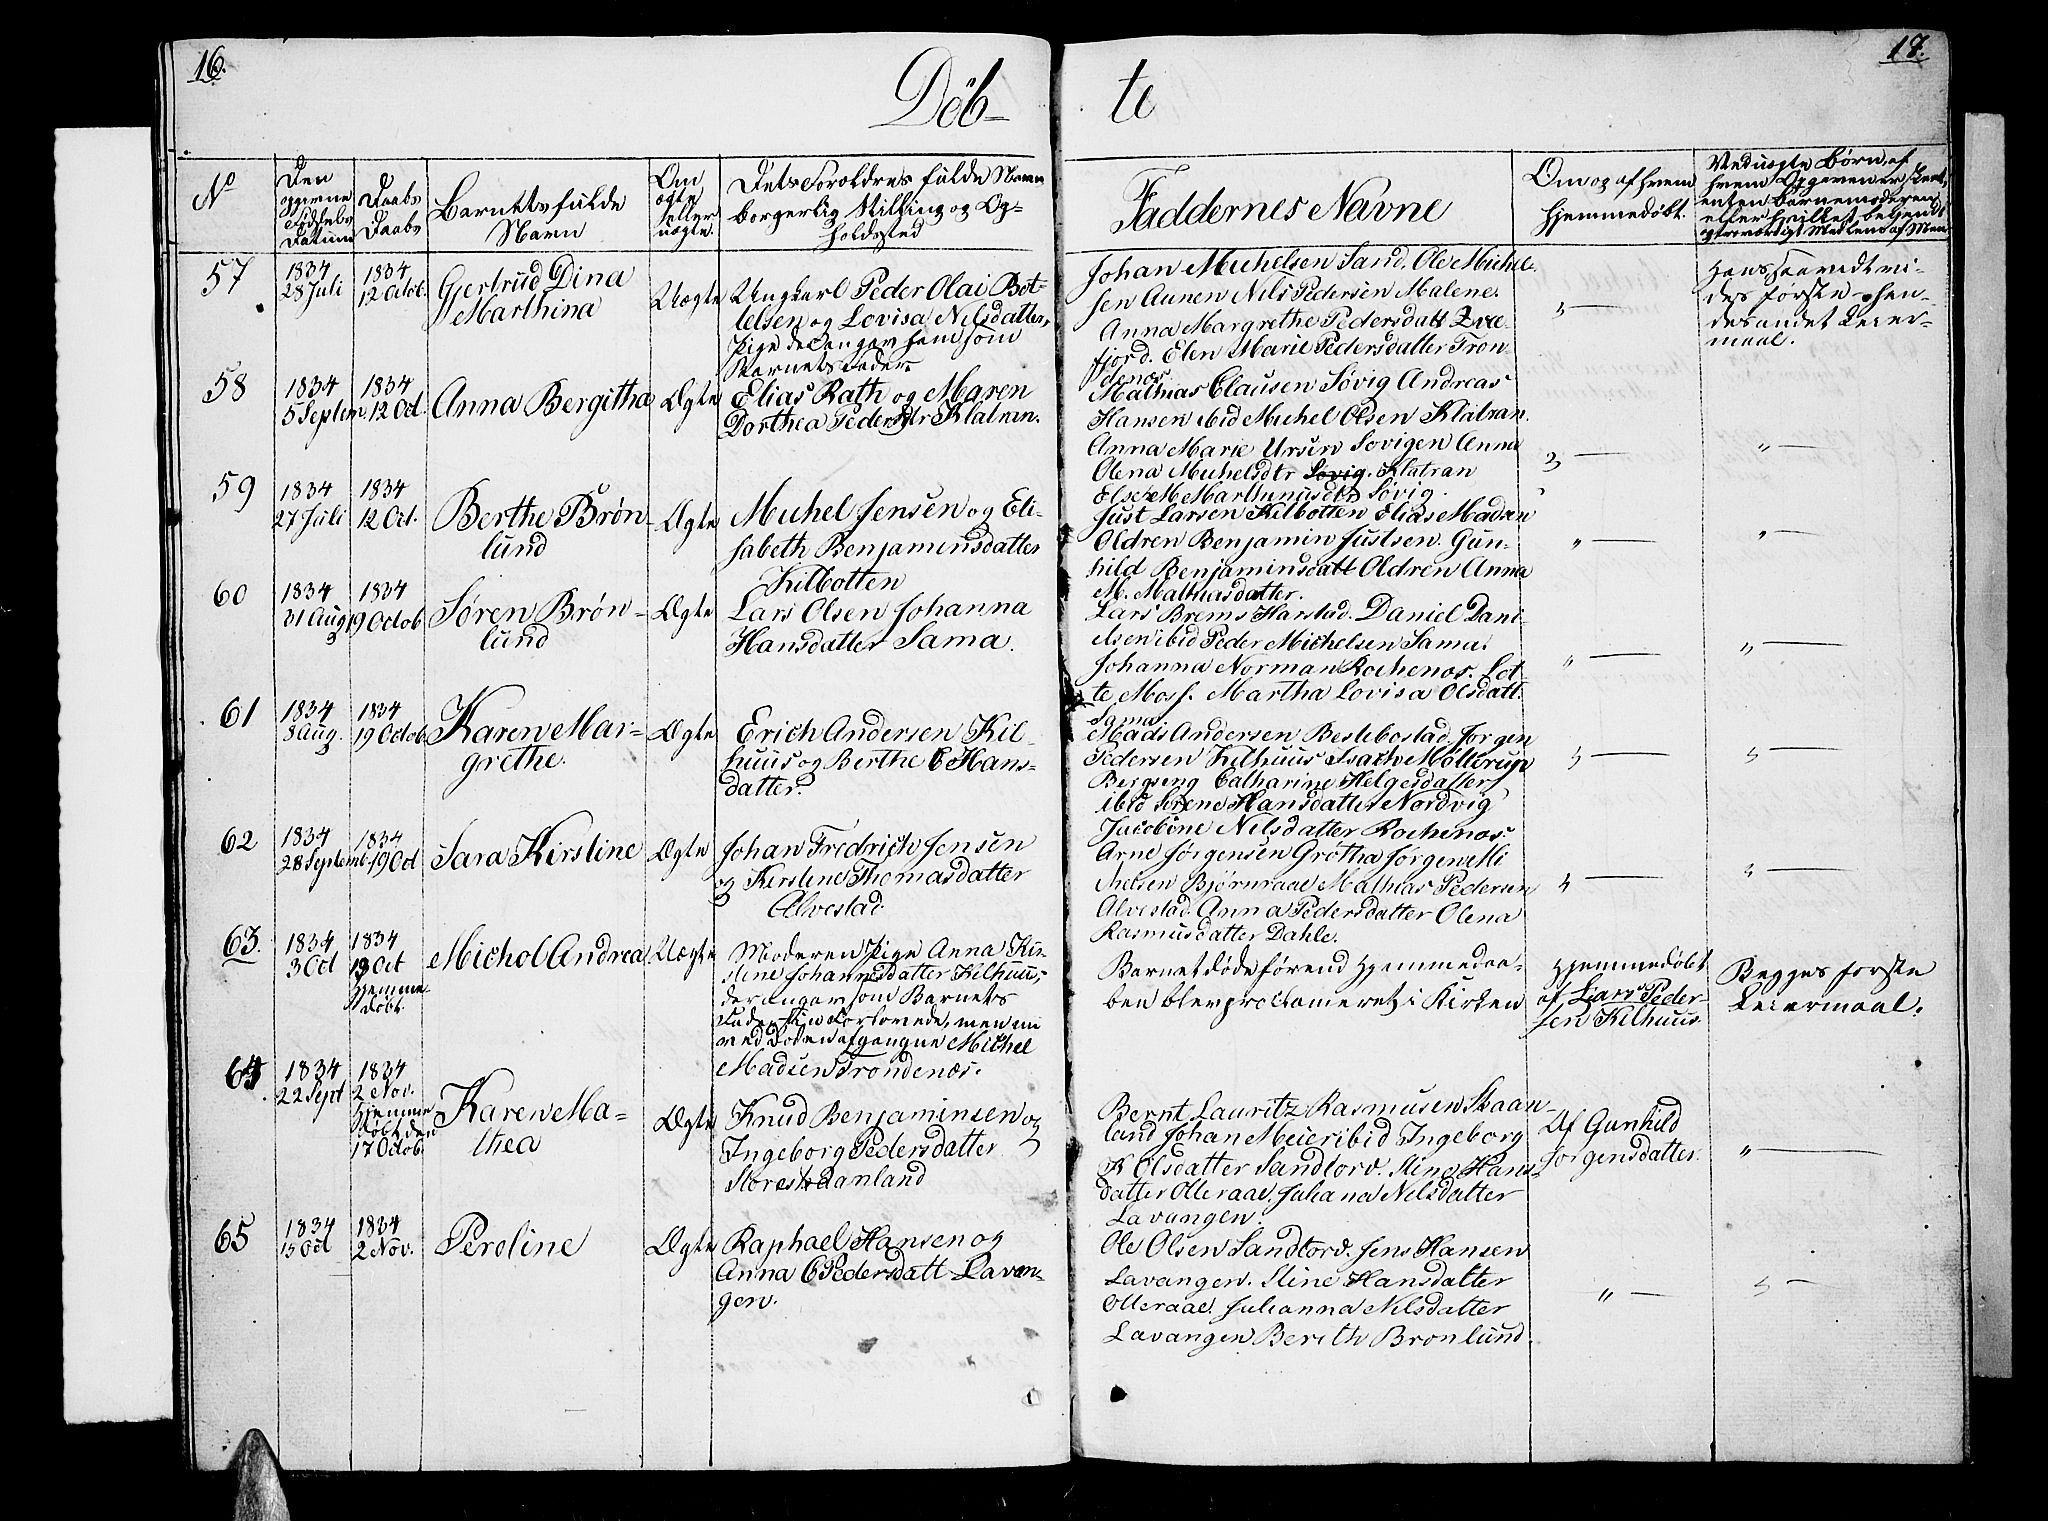 16.
Døb-
te
17.
No
Den
Fødsels
Datum
Daabs
Daab
Barnets fulde
Navn
Om
ægte
eller
uægte.
Dets Forældres fulde Navn
borgerlig Stilling og Op-
holdssted
Faddernes Navne
Om og af hvem
hjemmedøbt.
Ved uægte Børn, af
57
1834
28 Juli
1834
12 Octob.
Gjertrud Dina
Marthina
Uægte
Ungkarl Peder Olai Bot-
telsen og Lovisa Nilsdatter,
Pige der angav ham som
Barnets Fader
Johan Michelsen Sand. Ole Michel-
sen Aunen Nils Pedersen Malene.
Anna Margrethe Pedersdatt Qvæ-
fjord. Elen Marie Pedersdatter Tron
denæs
Hans saavidt vi-
des første - hen-
des andet Leier-
maal.
58
1834
5 Septem.
1834
12 Oct.
Anna Bergitha
Ægte
Elias Rath og Maren
Dorthea Pedersdtr Klatran.
Mathias Clausen Søvig Andreas
Hansen ibid Michel Olsen Klatran.
Anna Marie Ursin Sovigen Anna
Olena Michelsdtr Sovig. Klatran
Else M Marthinusdtr Søvig.
59
1834
27 Juli
1834
12 Oct.
Berthe Brøn-
lund
Ægte
Michel Jensen og Eli-
sabeth Benjaminsdatter
Kilbotten
Just Larsen Kilbotten Elias Madsen
Oldren Benjamin Justsen. Gun-
hild Benjaminsdatt Oldren Anna
M. Mathiasdatter.
60
1834
31 Aug
1834
19 Octob.
Søren Brøn-
lund
Ægte
Lars Olsen Johanna
Hansdatter Sama.
Lars Brems Harstad. Daniel Dani-
elsen ibid Peder Michelsen Sama.
Johanna Norman Rochenæs. Lot-
te Moss. Martha Lovisa Olsdatt.
Sama
61
1834
3 Aug.
1834
19 Octob.
Karen Mar-
grethe.
Ægte
Erich Andersen Kil-
huus og Berthe C Hans-
datter.
Mads Andersen Beslebostad. Jørgen
Pedersen Kilhuus Isach Møllerup
Bergseng Catharine Helgesdatter
ibid Serene Hansdatter Nordvig
62
1834
28 Septemb.
1834
19 Oct
Sara Kirstine
Ægte
Johan Fredrich Jensen
og Kirstine Thomasdatter
Alvestad.
Jacobine Nilsdatter Rochenæs
Arne Jørgensen Grøtha Jørgen Mi
chelsen Bjørnraae Mathias Pedersen
Alvestad. Anna Pedersdatter Olena
Rasmusdatter Dahle.
63.
1834
3 Oct
1834
Oct
Hjemme
døbt.
Michol Andrea
Uægte
Moderen Pige Anna Kir-
stine Johannesdatter Kilhuus,
der angav som Barnets
Fader sin Forlovede, men nu
ved Døden afgangne Michel
Madsen Trondenæs.
Barnet døde førend Hjemmedaa-
ben blev proclameret i Kirken
Hjemmedøbt
af Lars Peder-
sen Kilhuus.
Begges første
Leiermaal.
64
1834
22 Sept
1834
2 Nov.
Hjemme
døbt den
17 Octob.
Karen Ma-
thea
Ægte
Knud Benjaminsen og
Ingeborg Pedersdatter
Storeskaanland
Bernt Lauritz Rasmusen Skaan-
land Johan Meier ibid Ingeborg
K Olsdatter Sandtorv. Stine Hans-
datter Olleraae. Juliana Nilsdatter
Lavangen.
Af Gunhild
Jorgensdatter.
65
1834
15 Oct
1834
2 Nov.
Peroline
Ægte
Raphael Hansen og
Anna C Pedersdatt Lavan-
gen.
Ole Olsen Sandtorv. Jens Hansen
Lavangen. Stine Hansdatter
Olleraae. Julianna Nilsdatter
Lavangen Berith Bronlund.